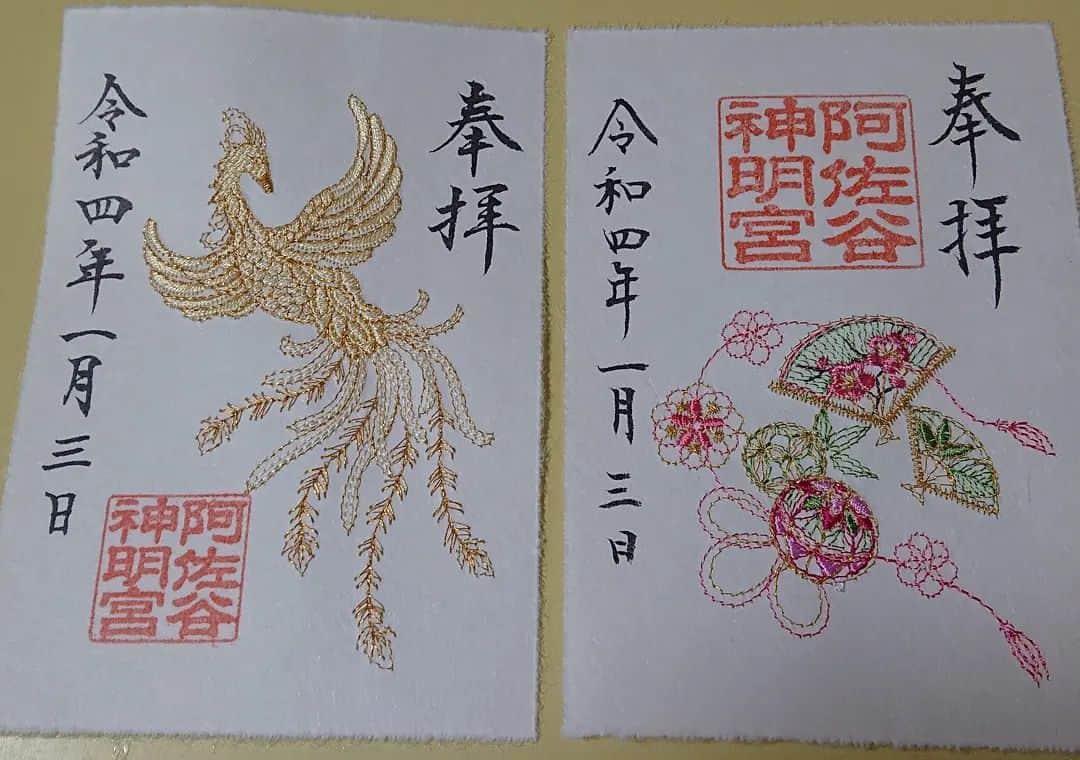 奉拝
令和四年一月三日
阿佐谷
神明宮
奉拝
阿佐谷
神明宮
令和四年一月三日